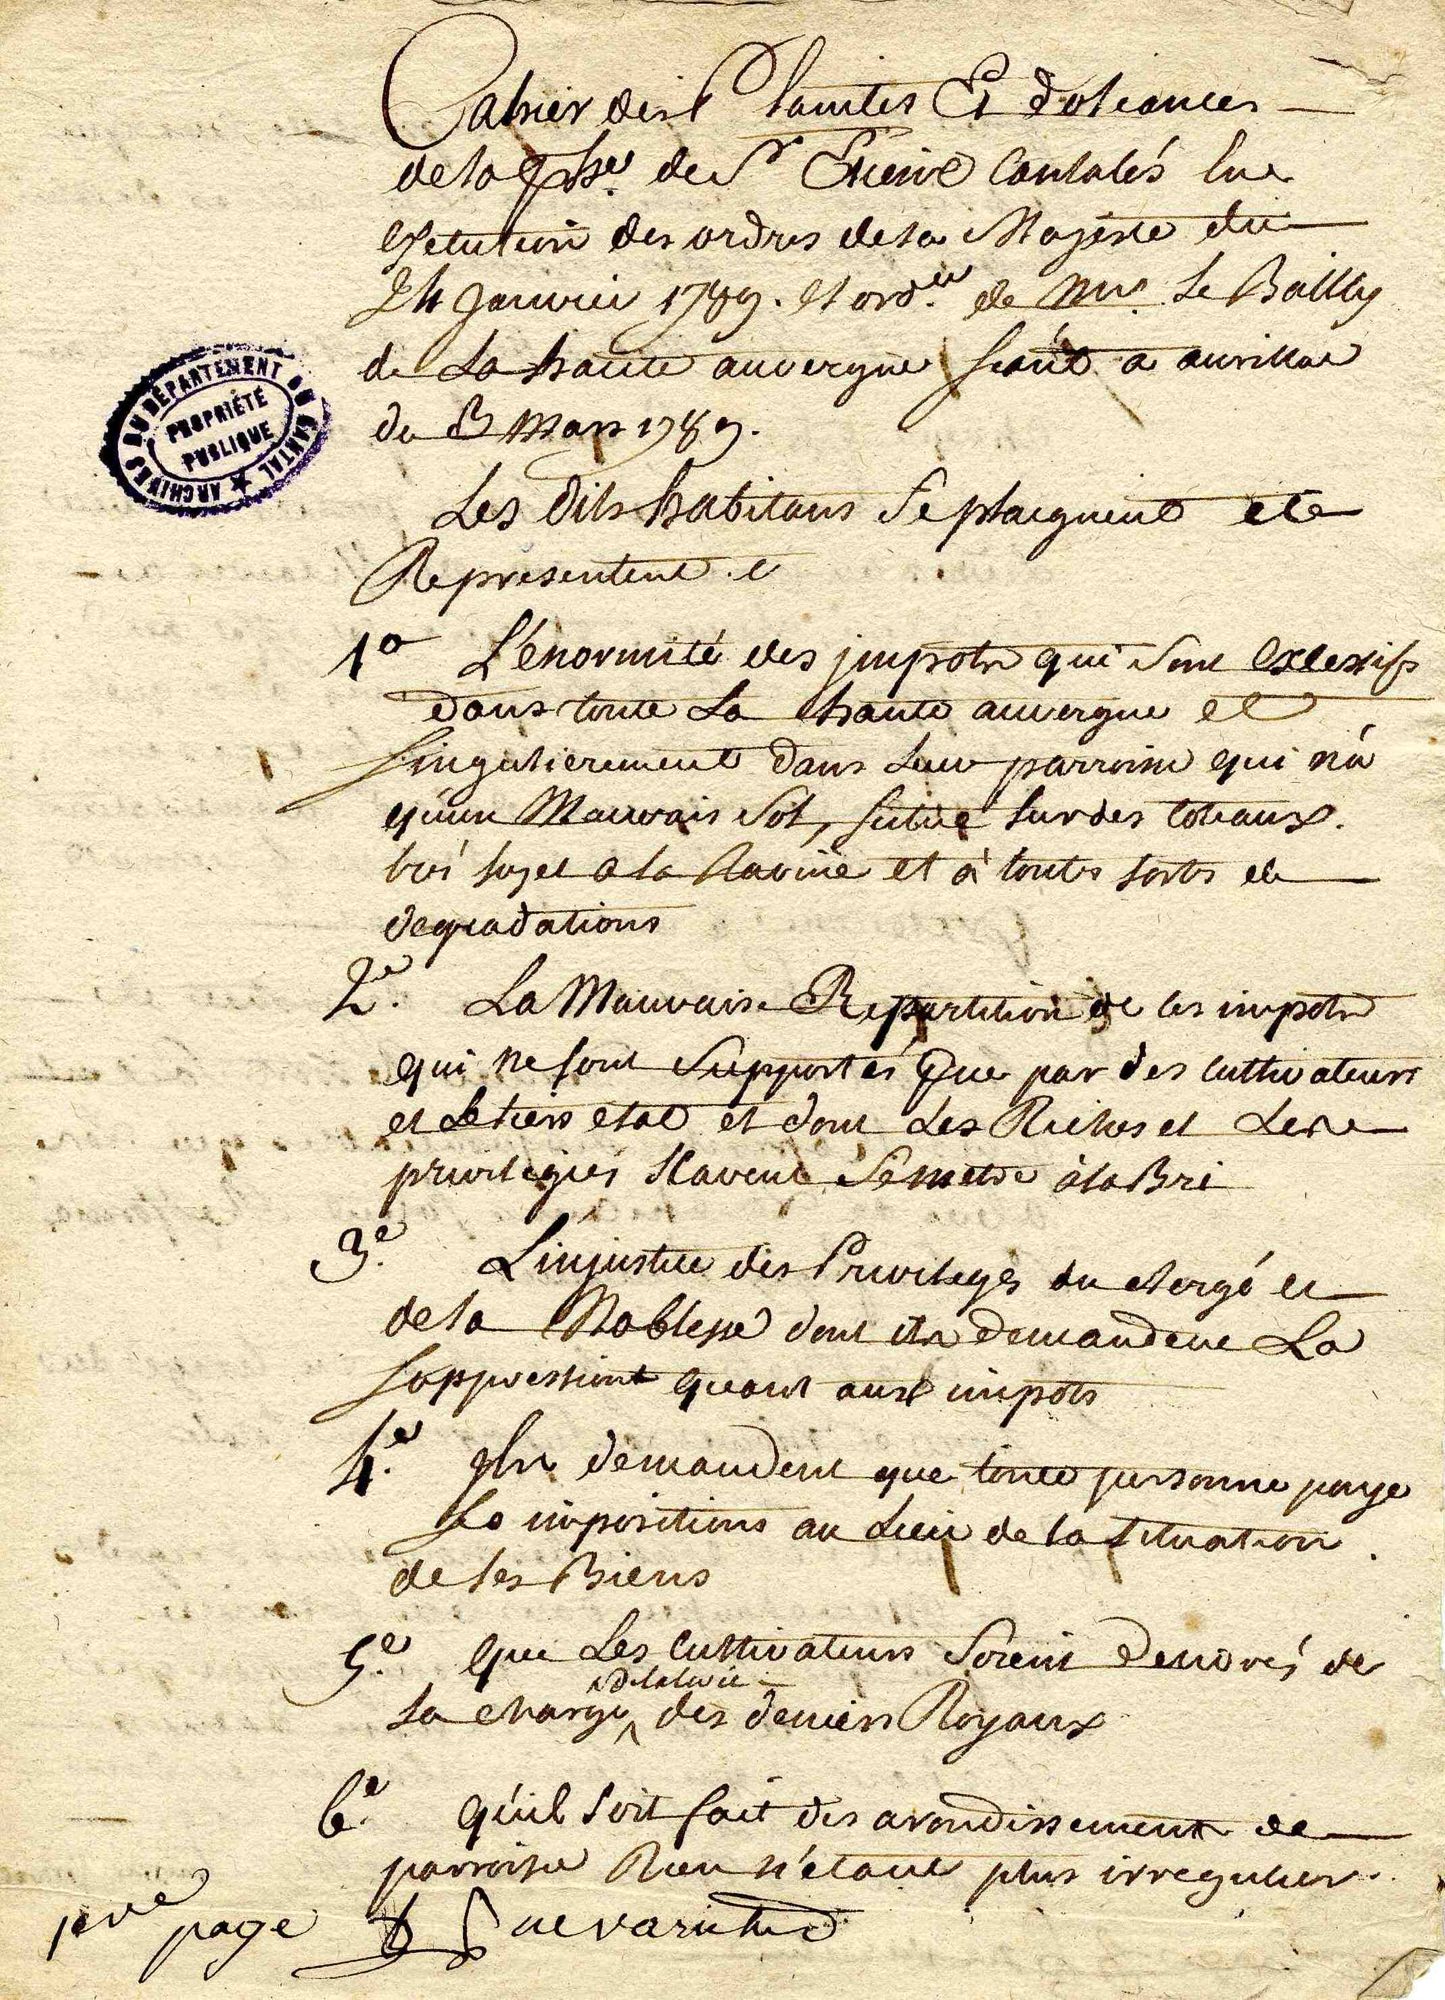 Cahier des Plaintes Et doleances
de la psse. de St Etienne Cantalés En
Execution des ordres de sa Majesté du
24 janvier 1789. et ordce de Mr. Le Bailly
de La haute auvergne seant a aurillac
du 3 Mars 1789.
Les dits habitans se plaignent et
Representent
1º L'énormité des jmpots qui sont excessifs
dans toute La haute auvergne et
singulierement dans leur parroisse qui n'a
qu'un Mauvais Sol, situé sur des coteaux
trés sujet a la Ravine et à toutes sorts de
degradations
2e. La Mauvaise Repartition de ces impots
qui ne sont Supportés Que par des cultivateurs
et Le tiers etat et dont Les Riches et Les
privilegiés Savent Se metre à la Bri
3e. L'injustice des Privileges du clergé et
de la Noblesse dont ils demandent La
suppression quant aux impots
4e. jls demandent que toute personne paye
Les impositions au Lieu de la situation
de ses Biens
5e. que Les cultivateurs Soient delivrés de
la charge des deniers Royaux
6e. qu'il soit fait des arondissements de
parroisse Rien n'étant plus irregulier
1ere page
ARCHIVES DU DÉPARTEMENT DU CANTAL ★
PROPRIÉTÉ
PUBLIQUE